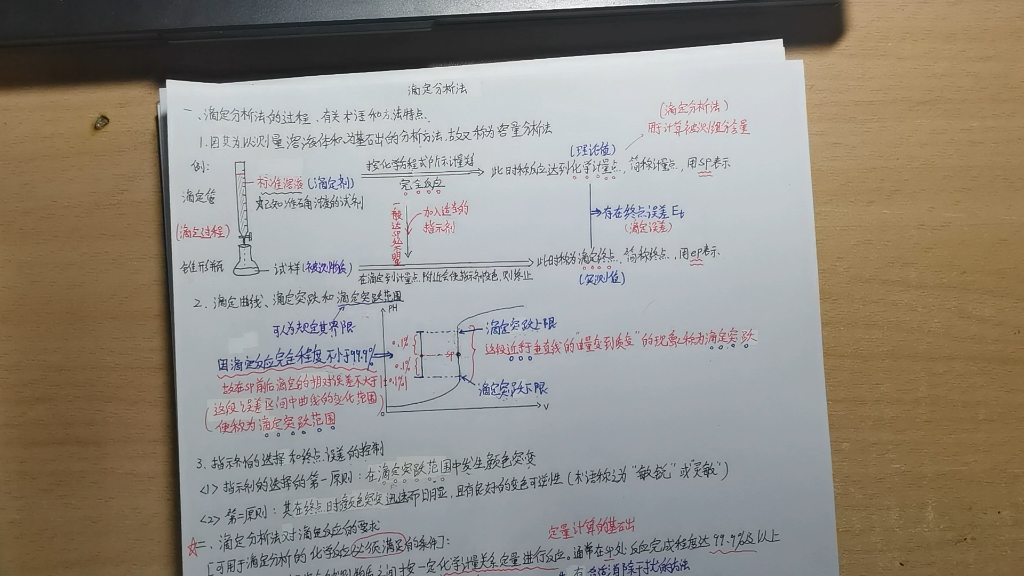 滴定分析法
一、滴定分析法的过程、有关术语和方法特点.
1.因其为以测量溶液体积为基础的分析方法,故又称为容量分析法
(滴定分析法)
用于计算被测组分含量
例:
滴定管
(滴定过程)
标准溶液(滴定剂)
是已知准确浓度的试剂
按化学方程式所示计量数
完全反应
(理论值)
此时称反应达到化学计量点,简称计量点,用sp表示
加入适当的
指示剂
存在终点误差 Et
(滴定误差)
锥形瓶
试样(被测物质)
在滴定到计量点附近会使指示剂变色,则终止
此时称为滴定终点,简称终点,用ep表示
(实测值)
2.滴定曲线、滴定突跃和滴定突跃范围
可人为规定其界限
PH
0.1%
0.1%
SP
V
滴定突跃上限
这段近乎垂直线的"由量变到质变"的现象称为滴定突跃
滴定突跃下限
因滴定反应完全程度不小于99.9%
故在SP前后滴定的相对误差不大于|±0.1%|
(这段误差区间中曲线的变化范围
便称为滴定突跃范围
3.指示剂的选择和终点误差的控制
<1>指示剂的选择的第一原则:在滴定突跃范围中发生颜色突变
<2>第二原则:其在终点时颜色突变迅速而明显,且有良好的变色可逆性(术语称之为"敏锐"或"灵敏")
二、滴定分析法对滴定反应的要求
[可用于滴定分析的化学反应必须满足的条件]:
定量计算的基础
之间按一定化学计量关系定量进行反应。通常在sp处反应完成程度达99.9%及以上
消除干扰的方法